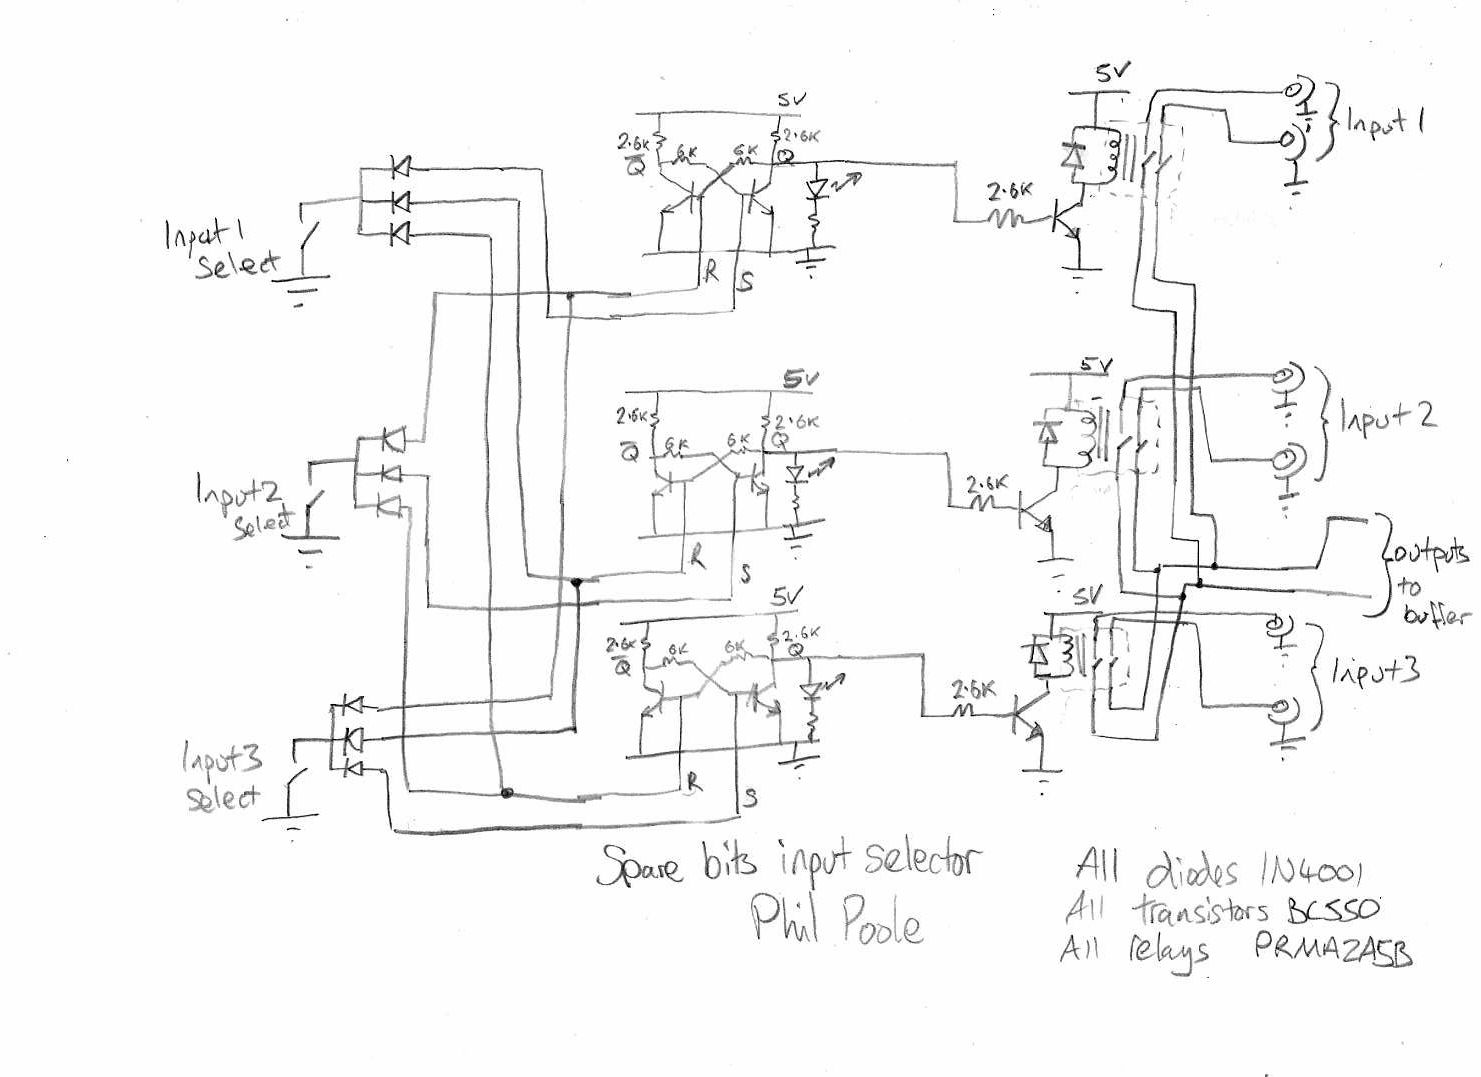 5V
2.6K
2.6K
6K
6K
Q̅
Q
R
S
Input 1
Select
2.6K
5V
Input 1
5V
2.6K
2.6K
6K
6K
Q̅
Q
R
S
Input 2
Select
2.6K
5V
Input 2
outputs
to
buffer
5V
2.6K
2.6K
6K
6K
Q̅
Q
R
S
Input 3
Select
2.6K
5V
Input 3
Spare bits input selector
Phil Poole
All diodes 1N4001
All transistors BC550
All relays PRMA2A5B